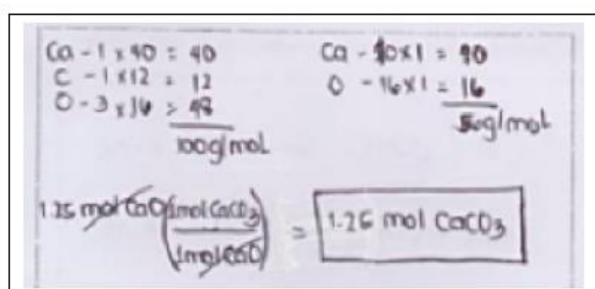 Ca - 1 x 40 = 40
C - 1 x 12 = 12
O - 3 x 16 = 48
100g/mol
Ca - 40x1 = 40
O - 16x1 = 16
g/mol
1.25 mol CaO (1mol CaCO3 / 1mol CaO) = 1.25 mol CaCO3